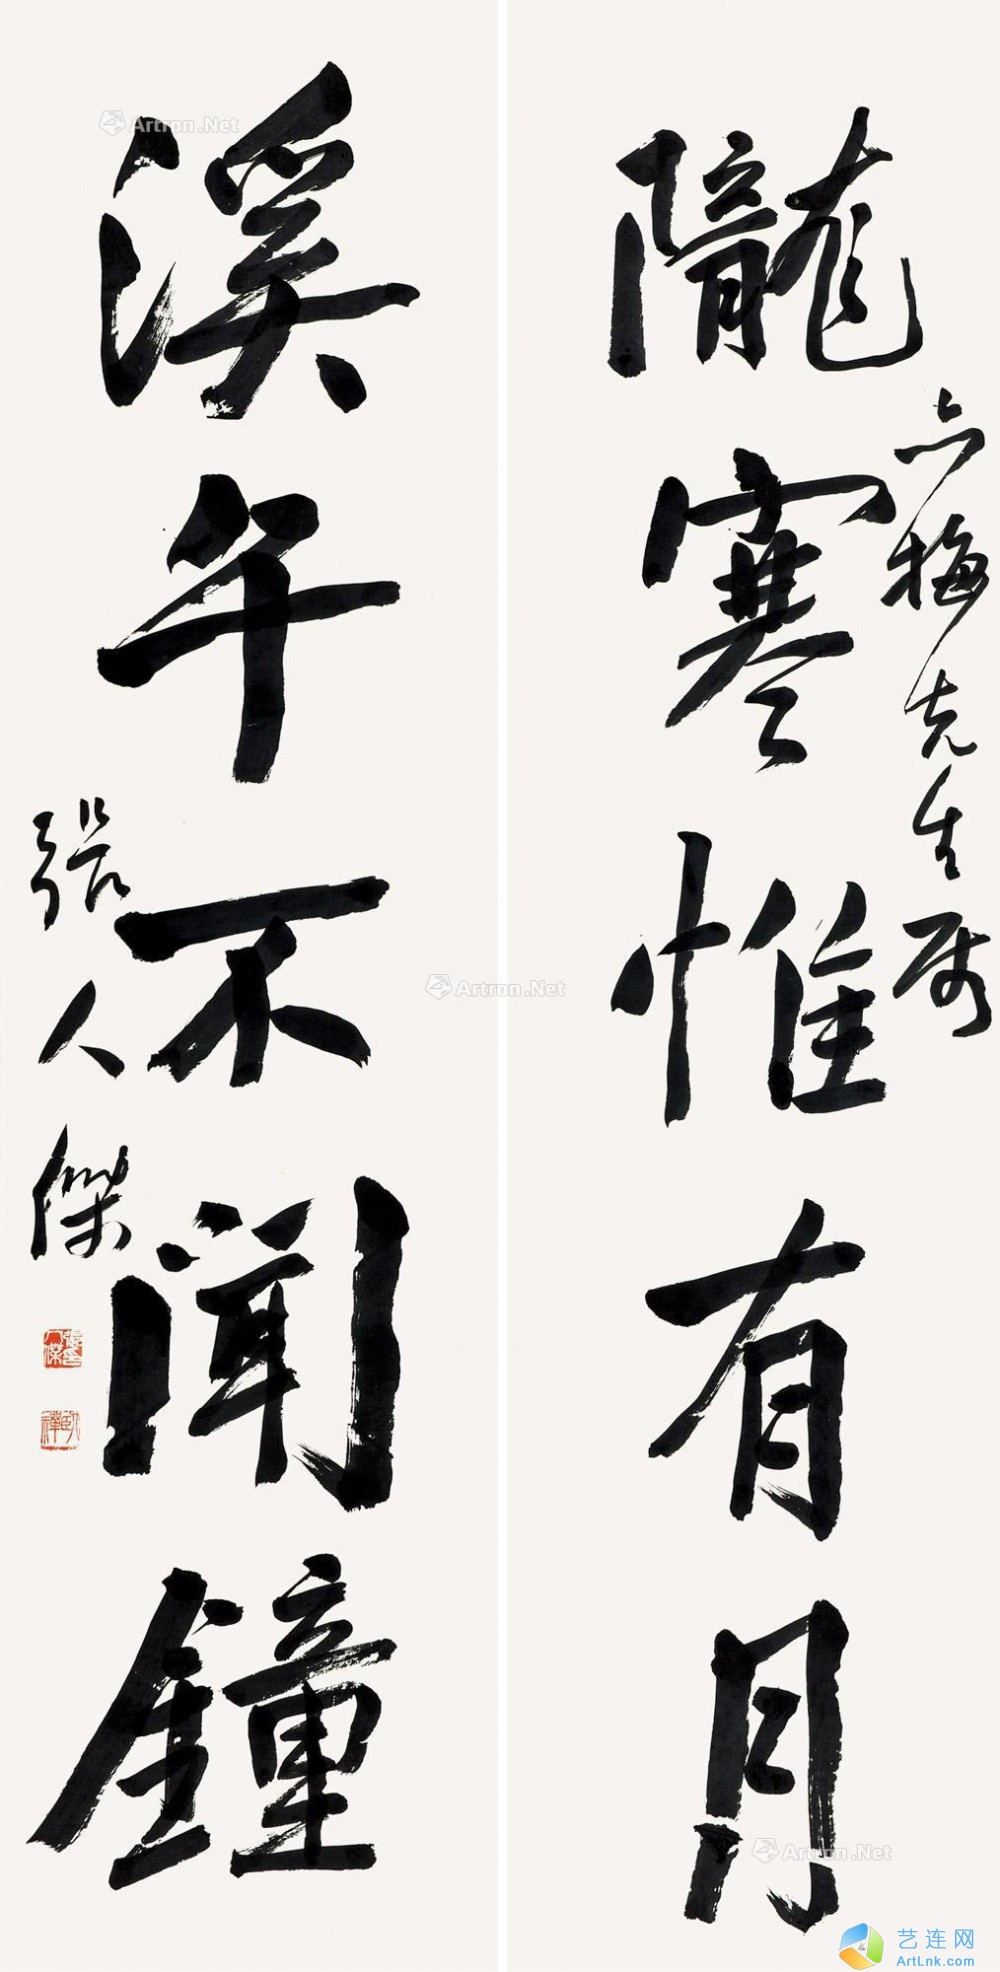 隴寒惟有月
六梅先生属
溪午不聞鐘
張人傑
張人傑印
臥禪
Artron.Net
Artron.Net
Artron.Net
艺连网
ArtLnk.com